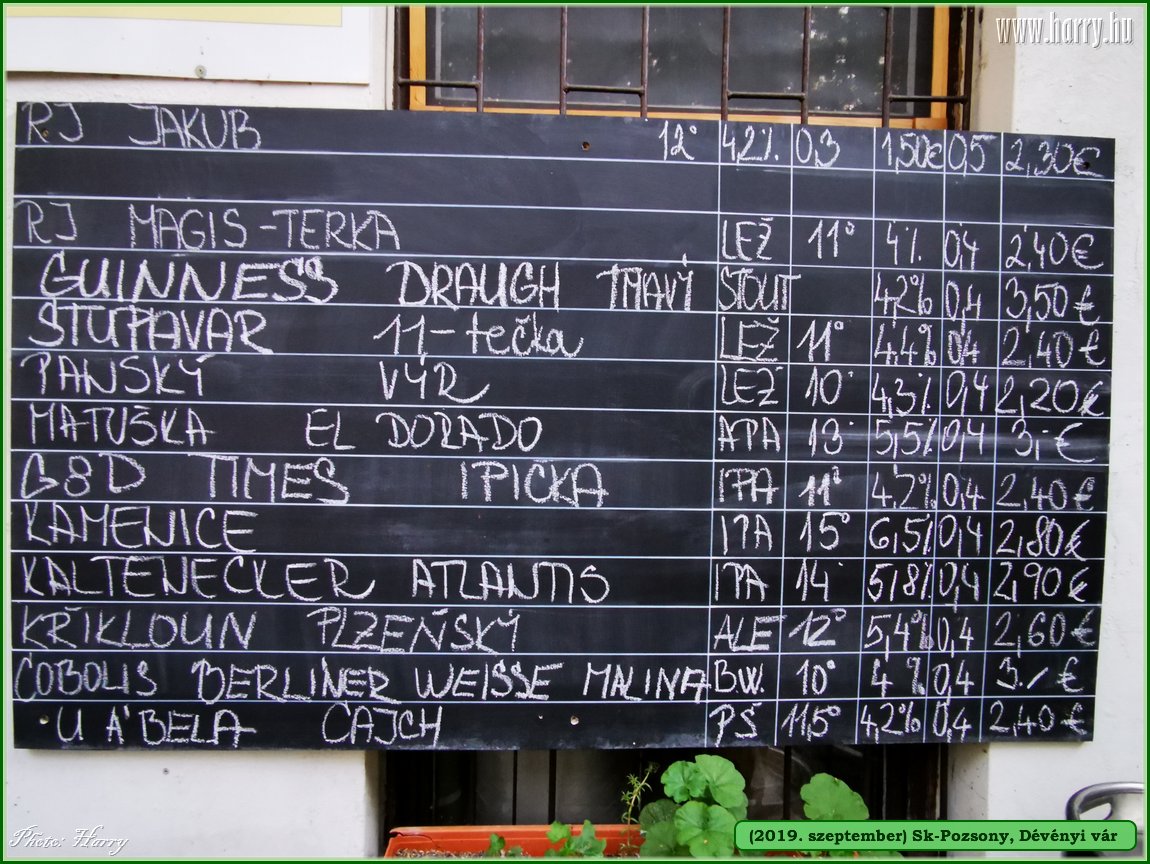 www.harry.hu
RJ JAKUB 12° 4,2% 0,3 1,50€ 0,5 2,30€
RJ MAGIS-TERKA LEŽ 11° 4% 0,4 2,40€
GUINNESS DRAUGH TMAVÝ STOUT 4,2% 0,4 3,50€
STUPAVAR 11-tečka LEŽ 11° 4,4% 0,4 2,40€
PANSKÝ VÝR LEŽ 10° 4,3% 0,4 2,20€
MATUŠKA EL DORADO APA 13° 5,5% 0,4 3,-€
G8D TIMES IPICKA IPA 11° 4,2% 0,4 2,40€
KAMENICE IPA 15° 6,5% 0,4 2,80€
KALTENECKER ATLANTIS IPA 14° 5,8% 0,4 2,90€
KŘIKLOUN PLZEŇSKÝ ALE 12° 5,4% 0,4 2,60€
COBOLIS BERLINER WEISSE MALINA B.W. 10° 4% 0,4 3.-€
U Á'BELA ČAJCH PŠ 11,5° 4,2% 0,4 2,40€
Photo: Harry
(2019. szeptember) Sk-Pozsony, Dévényi vár